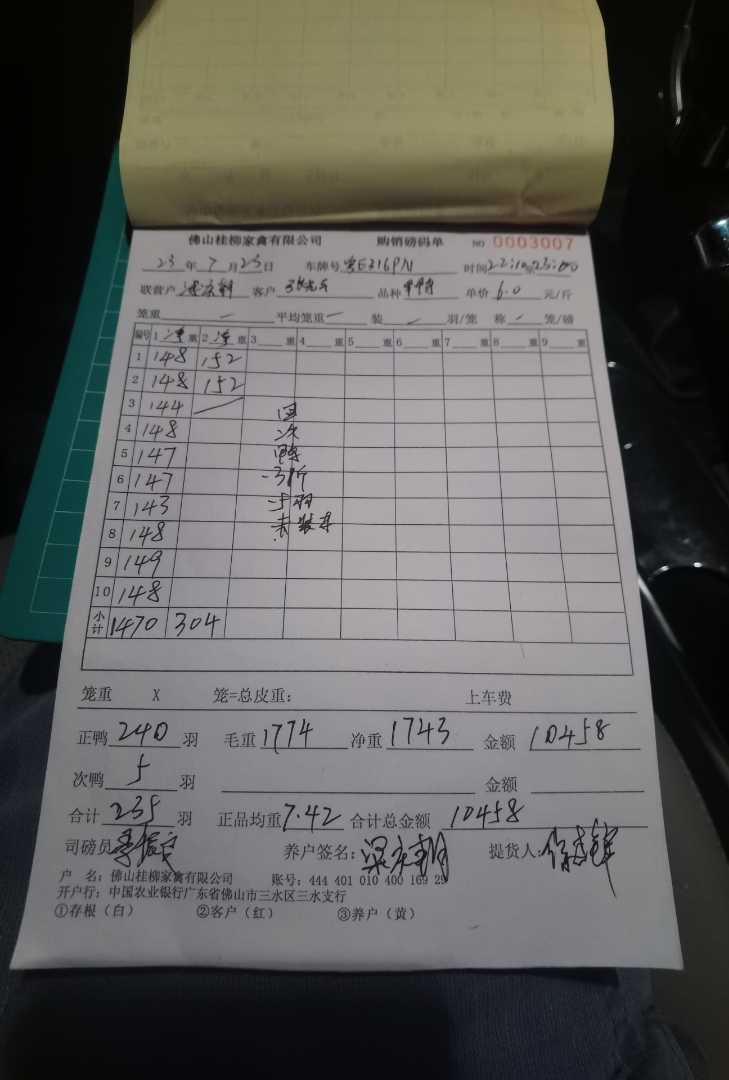 佛山桂柳家禽有限公司 购销磅码单 NO 0003007
23 年 7 月 23 日 车牌号 粤E316PN 时间 22:10至23:00
联营户 客户 品种 单价 6.0 元/斤
笼重 — 平均笼重 — 装 — 羽/笼 称 — 笼/磅
编号 1 净 重 2 净 重 3 重 4 重 5 重 6 重 7 重 8 重 9 重
1 148 152
2 148 152
3 144 —
4 148
5 147
6 147
7 143
8 148
9 149
10 148
小计 1470 304
回
次
鸭
-31斤
-5羽
未装车
笼重 X 笼=总皮重: 上车费
正鸭 240 羽 毛重 1774 净重 1743 金额 10458
次鸭 5 羽 金额
合计 235 羽 正品均重 7.42 合计总金额 10458
司磅员 养户签名: 提货人:
户 名: 佛山桂柳家禽有限公司 账号: 444 401 010 400 169 29
开户行: 中国农业银行广东省佛山市三水区三水支行
①存根(白) ②客户(红) ③养户(黄)